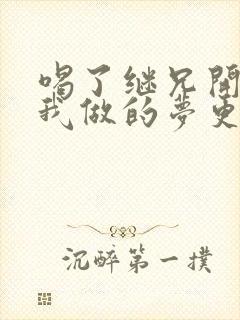 喝了继兄開
我做的夢更
沉醉第一撲